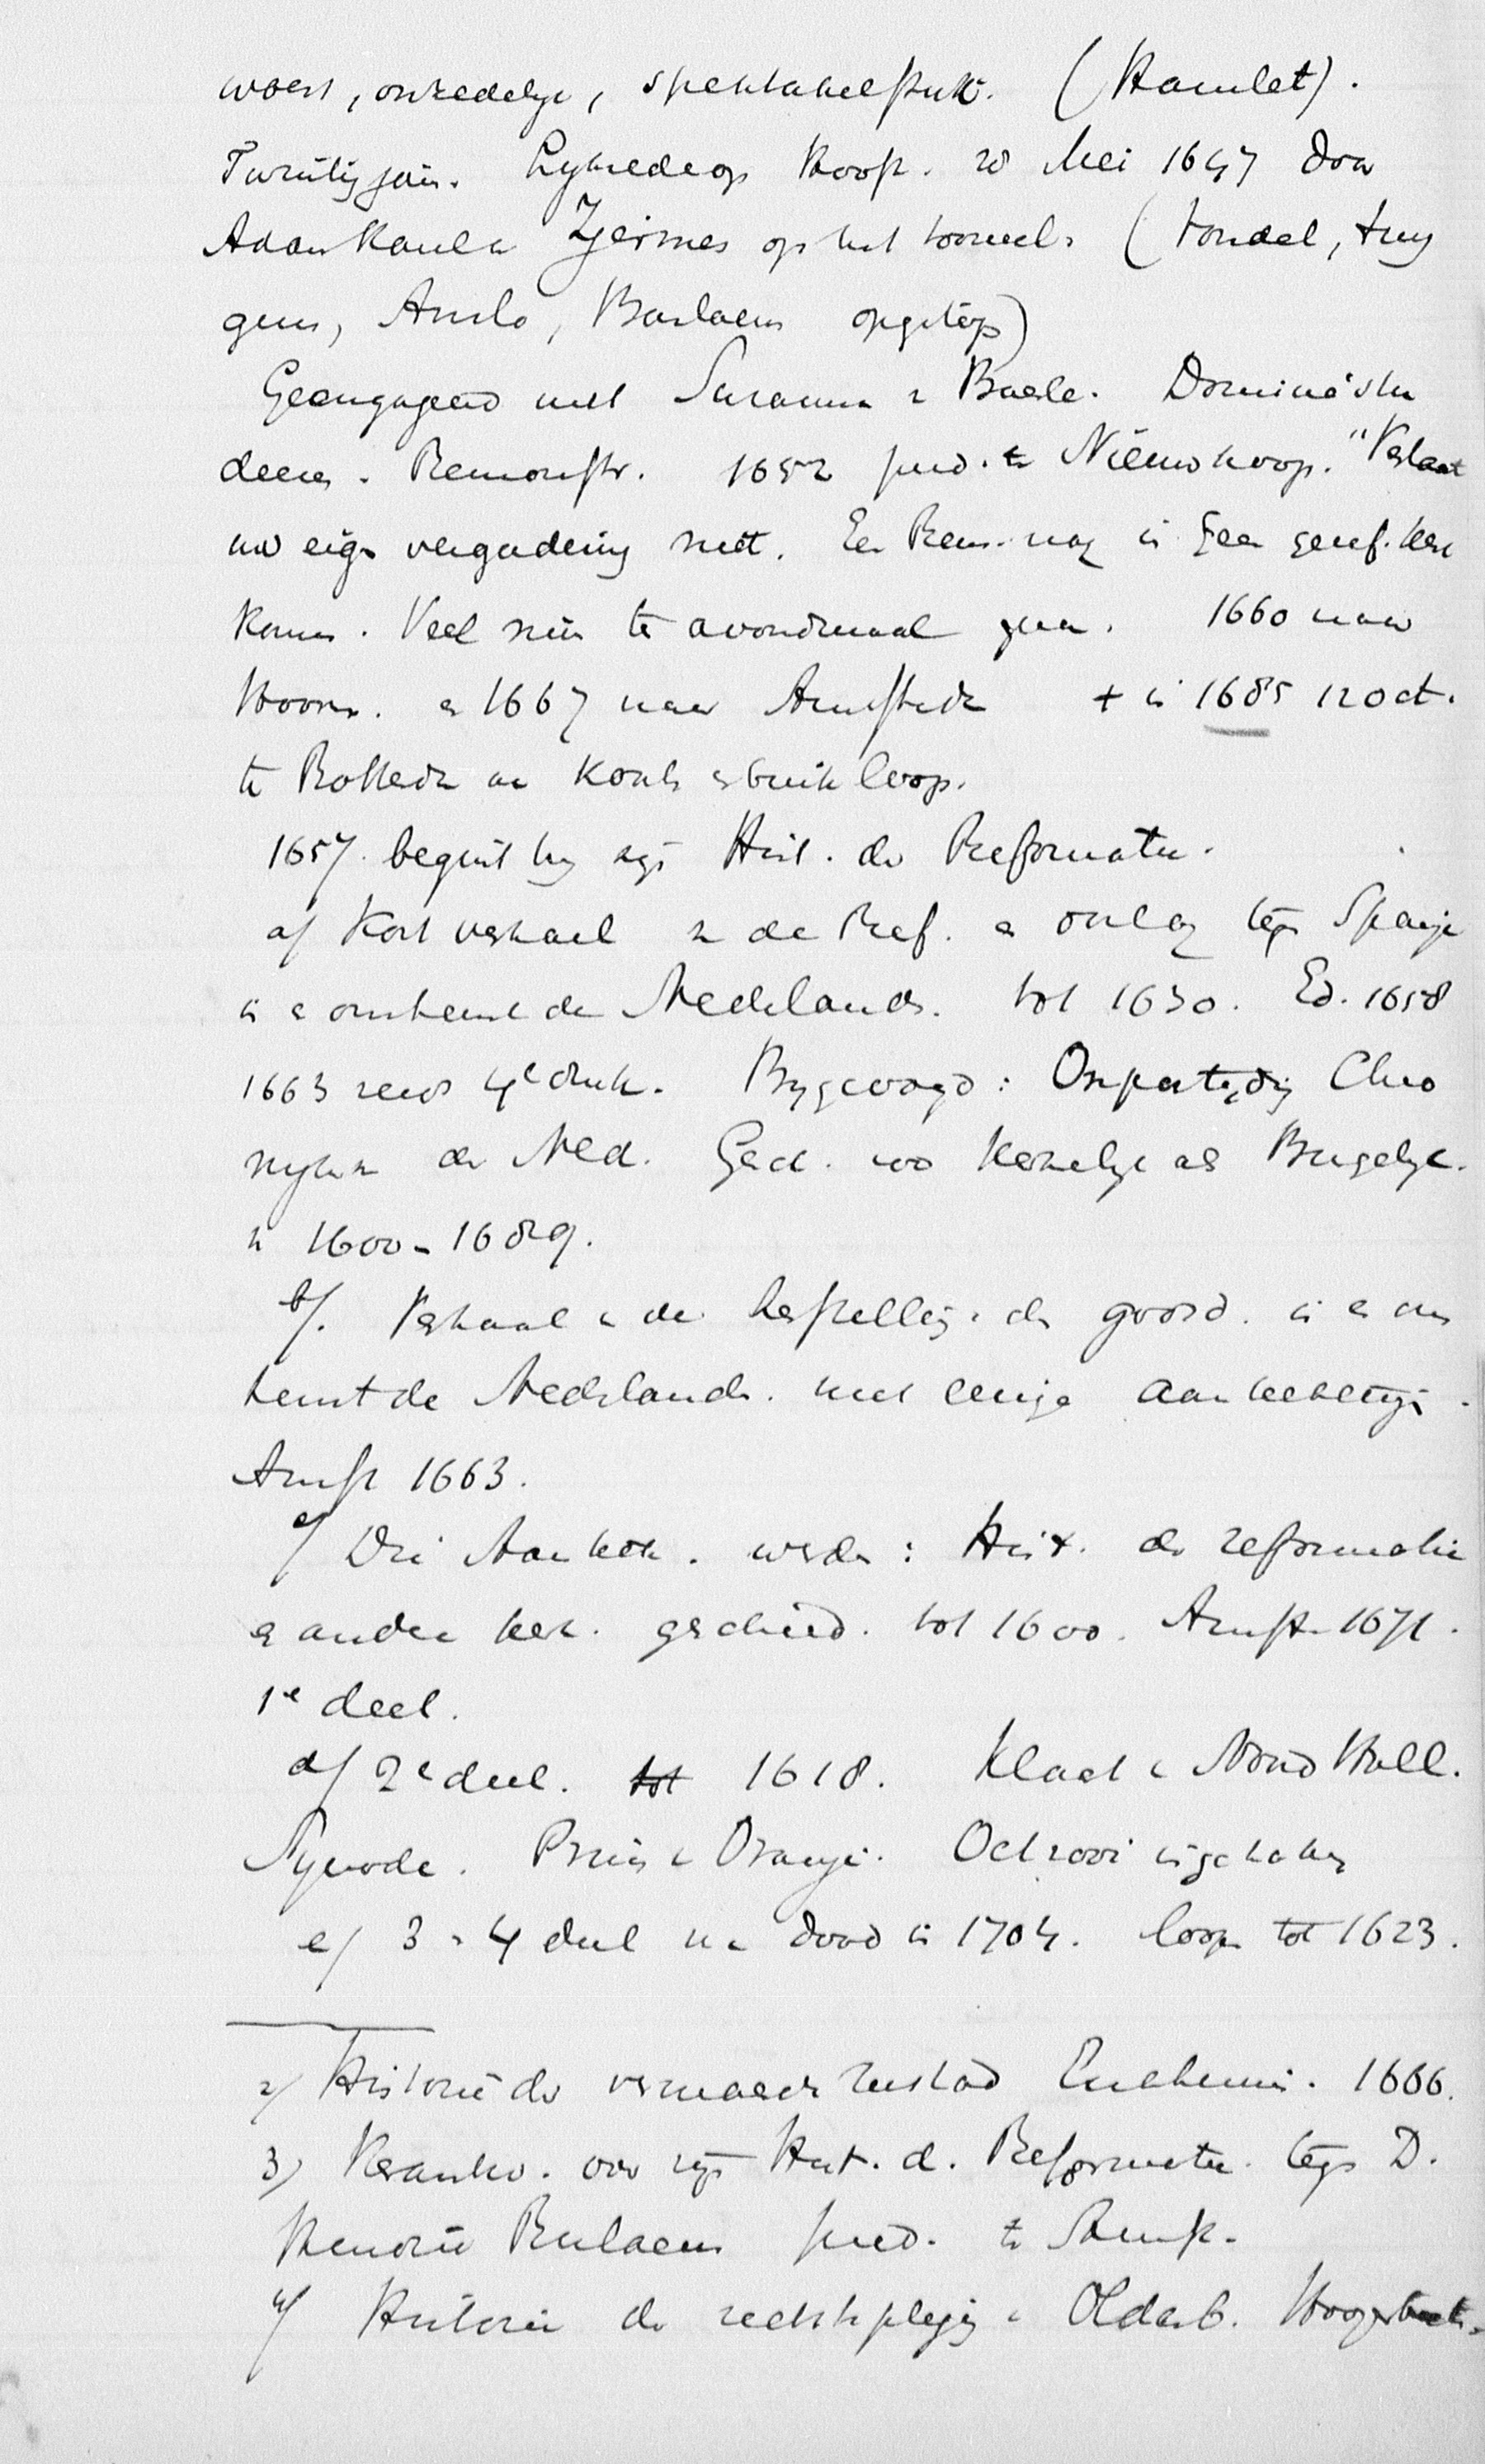 woest, onzedelyk, spektakelstuk. (Hamlet).
Twintig jaar. Lykrede op Hooft. 28 Mei 1647 door
Adam Karels Zjermes op het tooneel. (Vondel, Huy
gens, Anslo, Barlaeus
Geengageerd met Susanna v Baerle. Dominé's
deens. Remonstr. 1652 pred. te Nieuwkoop. "Verlaat
uw eign vergadering niet. Een Rem. mag in geen geref. kerk
komen. Veel min te avondmaal gaan. 1660 naar
Hoorn. en 1667 naar Amsterdam + in 1685 12 Oct.
te Rotterdm an koorts en buikloop.
1657 begint hy zyn Hist. der Reformatie.
a/ Kort verhael vn de Ref. en oorlog tegn Spanje
in en omtrent de Nederlanden. tot 1630. Ed. 1658
1663 reeds 4e druk. Bygevoegd: Onpartydig Chro
nykn der Ned. Gesch. zoo kerkelyk als Burgelyk.
v 1600-1689.
b/. Verhaal v de herstelling der godsd. in en om
trent de Nederland. met eenige aanteekeningn.
Amst 1663.
c/ Die Aanteek. werden: Hist. der reformatie
en andere kerk. geschied. tot 1600. Amst. 1671.
1e deel.
d/ 2e deel. tot 1618. Klacht v Noord Holl.
Synode. Prins v Oranje. Octrooi ingetrokken
e/ 3 en 4 deel na dood in 1704. loopn tot 1623.
2/ Historie der vermaerde zeestad Enckhuizen. 1666.
3/ Verantw. over zyn Hist. d. Reformatie. tegn D.
Henricus Rulaeus pred. te Amst.
4/ Historie der rechtsplegin v Oldenb. Hoogerbeets.